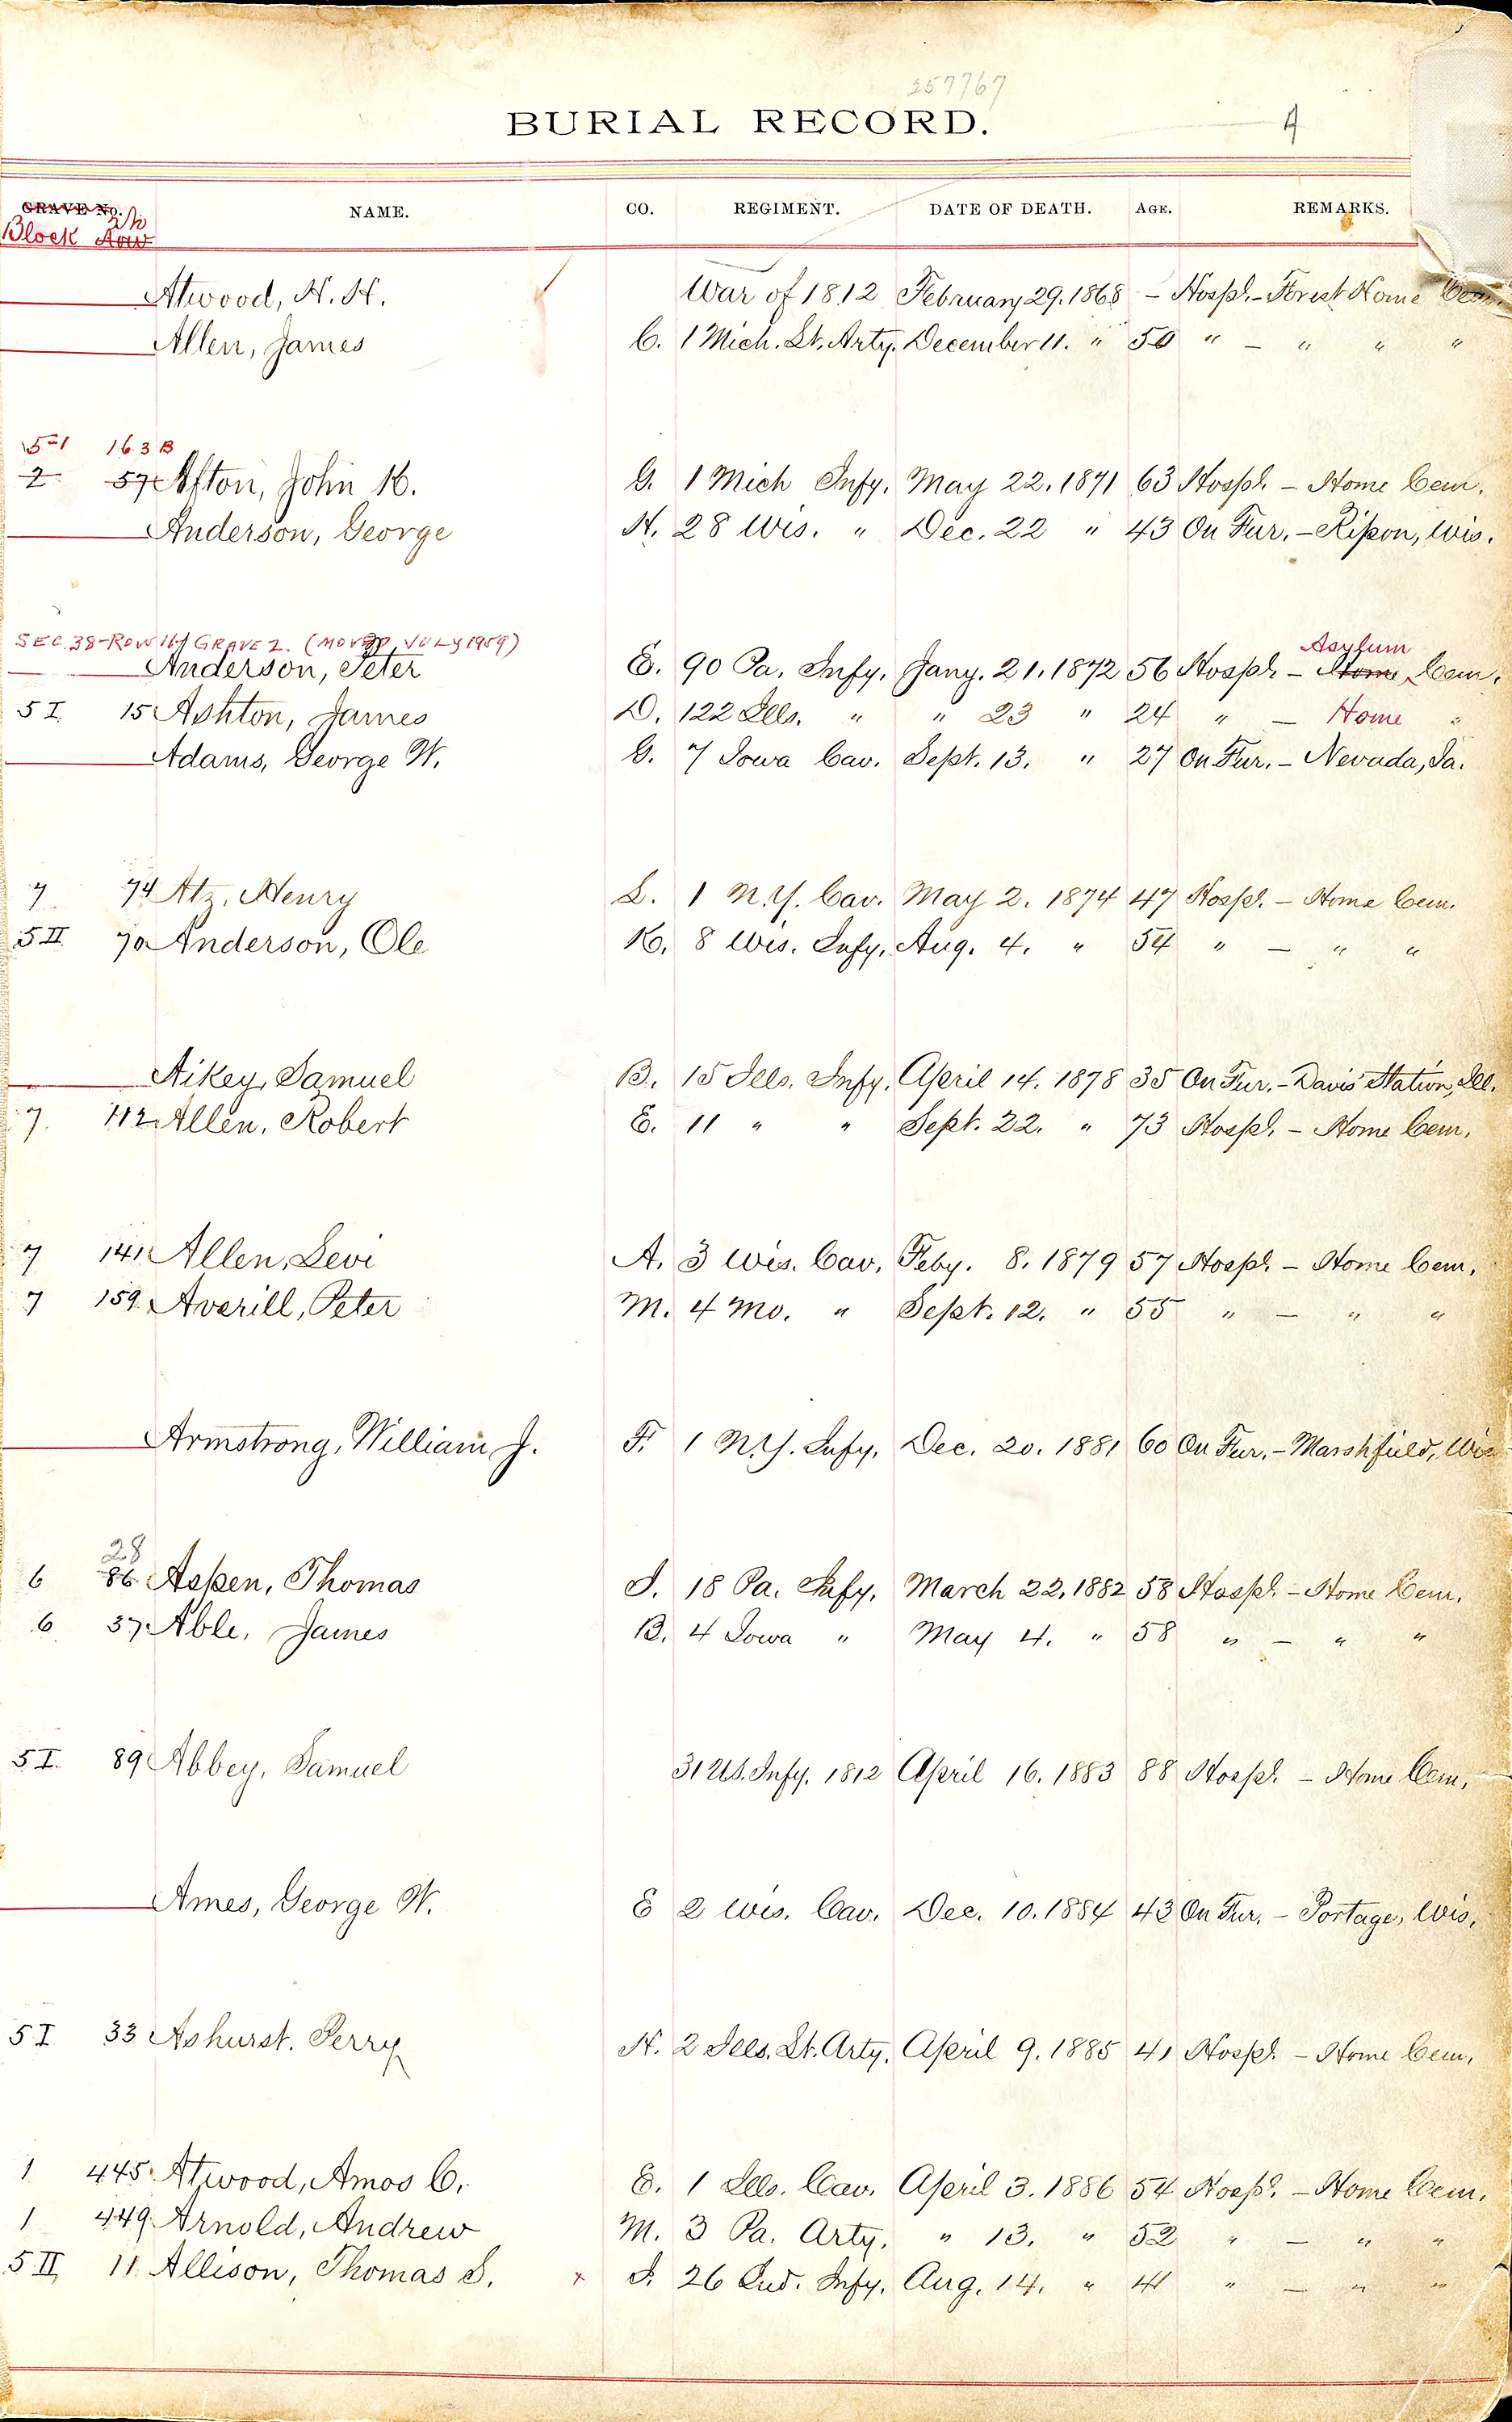 257767
BURIAL RECORD. A
GRAVE No. NAME. CO. REGIMENT. DATE OF DEATH. AGE. REMARKS.
Block Row
Atwood, H. H. War of 1812 February 29. 1868 – Hospl. – Forest Home Cem.
Allen, James C. 1 Mich. Lt. Arty. December 11. " 50 " – " " "
5-1 163 B
2 57 Afton, John K. G. 1 Mich Infy. May 22. 1871 63 Hospl. – Home Cem.
Anderson, George H. 28 Wis. " Dec. 22 " 43 On Fur. – Ripon, Wis.
SEC. 38-ROW 16/ GRAVE 2. (MOVED, JULY 1959) Asylum
Anderson, Peter E. 90 Pa. Infy. Jany. 21. 1872 56 Hospl. – Home Cem.
5 I 15 Ashton, James D. 122 Ills. " " 23 " 24 " – Home "
Adams, George W. G. 7 Iowa Cav. Sept. 13. " 27 On Fur. – Nevada, Ia.
7 74 Atz, Henry L. 1 N.Y. Cav. May 2. 1874 47 Hospl. – Home Cem.
5 II 70 Anderson, Ole K. 8 Wis. Infy. Aug. 4. " 54 " – " "
Aikey, Samuel B. 15 Ills. Infy. April 14. 1878 35 On Fur. – Davis Station, Ill.
7. 112 Allen, Robert E. 11 " " Sept. 22. " 73 Hospl. – Home Cem.
7 141 Allen, Levi A. 3 Wis. Cav. Feby. 8. 1879 57 Hospl. – Home Cem.
7 159. Averill, Peter M. 4 Mo. " Sept. 12. " 55 " – " "
Armstrong, William J. F. 1 N.Y. Infy. Dec. 20. 1881 60 On Fur. – Marshfield, Wis
28
6 86 Aspen, Thomas I. 18 Pa. Infy. March 22. 1882 58 Hospl. – Home Cem.
6 37 Able, James B. 4 Iowa " May 4. " 58 " – " "
5 I. 89 Abbey, Samuel 31 U.S. Infy. 1812 April 16. 1883 88 Hospl. – Home Cem.
Ames, George W. E 2 Wis. Cav. Dec. 10. 1884 43 On Fur. – Portage, Wis.
5 I 33 Ashurst. Perry H. 2 Ills. Lt. Arty. April 9. 1885 41 Hospl. – Home Cem.
1 445. Atwood, Amos C. E. 1 Ills. Cav. April 3. 1886 54 Hospl. – Home Cem.
1 449 Arnold, Andrew M. 3 Pa. Arty. " 13. " 52 " – " "
5 II 11 Allison, Thomas S. x I. 26 Ind. Infy. Aug. 14. " 41 " – " "